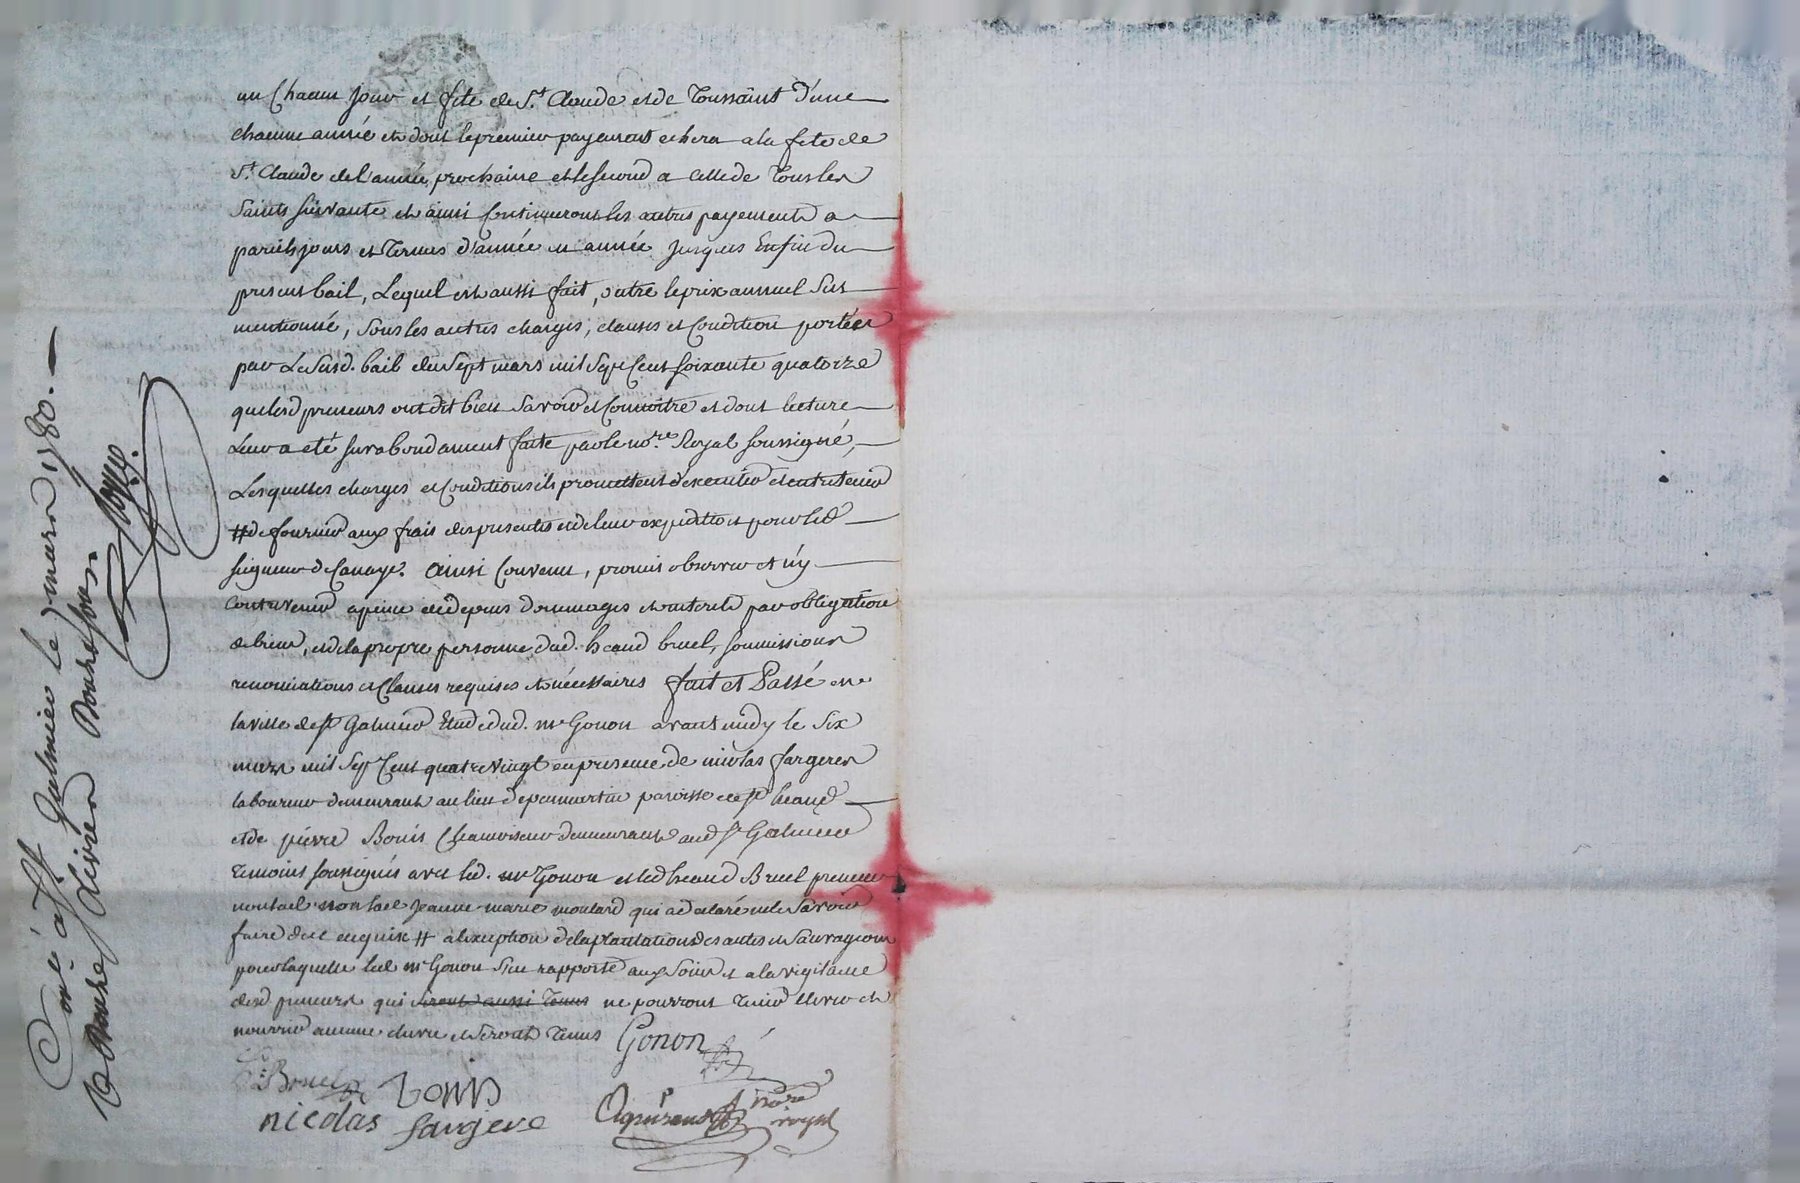 un Chacun Jour et fête de St. Claude et de Toussaint d'une
chacune année et dont le premier payement echera a la fete de
St. Claude de l'année prochaine et le second a celle de Tous les
Saints suivante et ainsi Continueront les autres payements a
pareils jours et Termes d'année en année Jusques Enfin du
present bail, Lequel est aussi fait, outre le prix annuel Sus
mentionné, Sous les autres charges, clauses et Condition portées
par Le Susd. bail du Sept mars mil Sept Cent soixante quatorze
que lesd preneurs ont dit bien Savoir et Connoitre et dont lecture
Leur a eté surabondament faite par le nore. Royal soussigné,
Lesquelles charges et Conditions ils promettent d'executer et entretenir
# de fournir aux frais des presentes et de leur expedition pour led
seigneur de ainsi Convenu, promis observer et n'y
Contrevenir a peine de depens dommages et interets par obligation
de biens, et de la propre personne dud. heaud bruel, soumissions
renonciations et Clauses requises et nécessaires fait et Passé en
la ville de st Galmier Etude dud. me Gonon avant midy le Six
mars mil Sept Cent quatre vingt en presence de nicolas fargeres
laboureur demeurant au lieu de paroisse de st heand
et de pierre Bonis Chamoiseur demeurant aud st Galmier
temoins soussignés avec led. me Gonon et led heaud Bruel preneur
non lad. Jeanne marie moulard qui a declaré ne le Savoir
faire de ce enquise # a l'exception de la plantation des autres en Sauvageons
pour laquelle led mr Gonon s'en rapporte aux Soins et a la vigilance
desd. preneurs qui seront aussi Tenus ne pourront tenir elever et
nourrir aucune chevre et seront Tenus Gonon
Bruel bonis
nicolas fargere nore royal
Coné à St. Galmier le 7 mars 1780.